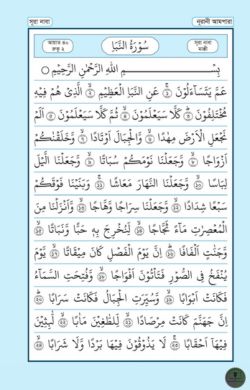 সূরা নাবা	নূরানী আমপারা
আয়াত ৪০
রুকু ২
سُوْرَةُ النَّبَاِ
সূরা নাবা
মাক্কী
بِسْمِ اللّٰهِ الرَّحْمٰنِ الرَّحِيْمِ
عَمَّ يَتَسَآءَلُوْنَ ۝ عَنِ النَّبَاِ الْعَظِيْمِ ۝ الَّذِىْ هُمْ فِيْهِ
مُخْتَلِفُوْنَ ۝ كَلَّا سَيَعْلَمُوْنَ ۝ ثُمَّ كَلَّا سَيَعْلَمُوْنَ ۝ اَلَمْ
نَجْعَلِ الْاَرْضَ مِهٰدًا ۝ وَالْجِبَالَ اَوْتَادًا ۝ وَخَلَقْنٰكُمْ
اَزْوَاجًا ۝ وَجَعَلْنَا نَوْمَكُمْ سُبَاتًا ۝ وَجَعَلْنَا الَّيْلَ
لِبَاسًا ۝ وَجَعَلْنَا النَّهَارَ مَعَاشًا ۝ وَبَنَيْنَا فَوْقَكُمْ
سَبْعًا شِدَادًا ۝ وَجَعَلْنَا سِرَاجًا وَّهَّاجًا ۝ وَاَنْزَلْنَا مِنَ
الْمُعْصِرٰتِ مَآءً ثَجَّاجًا ۝ لِّنُخْرِجَ بِهٖ حَبًّا وَّنَبَاتًا ۝
وَّجَنّٰتٍ اَلْفَافًا ۝ اِنَّ يَوْمَ الْفَصْلِ كَانَ مِيْقَاتًا ۝ يَّوْمَ
يُنْفَخُ فِى الصُّوْرِ فَتَاْتُوْنَ اَفْوَاجًا ۝ وَّفُتِحَتِ السَّمَآءُ
فَكَانَتْ اَبْوَابًا ۝ وَّسُيِّرَتِ الْجِبَالُ فَكَانَتْ سَرَابًا ۝
اِنَّ جَهَنَّمَ كَانَتْ مِرْصَادًا ۝ لِّلطّٰغِيْنَ مَاٰبًا ۝ لّٰبِثِيْنَ
فِيْهَآ اَحْقَابًا ۝ لَا يَذُوْقُوْنَ فِيْهَا بَرْدًا وَّلَا شَرَابًا ۝